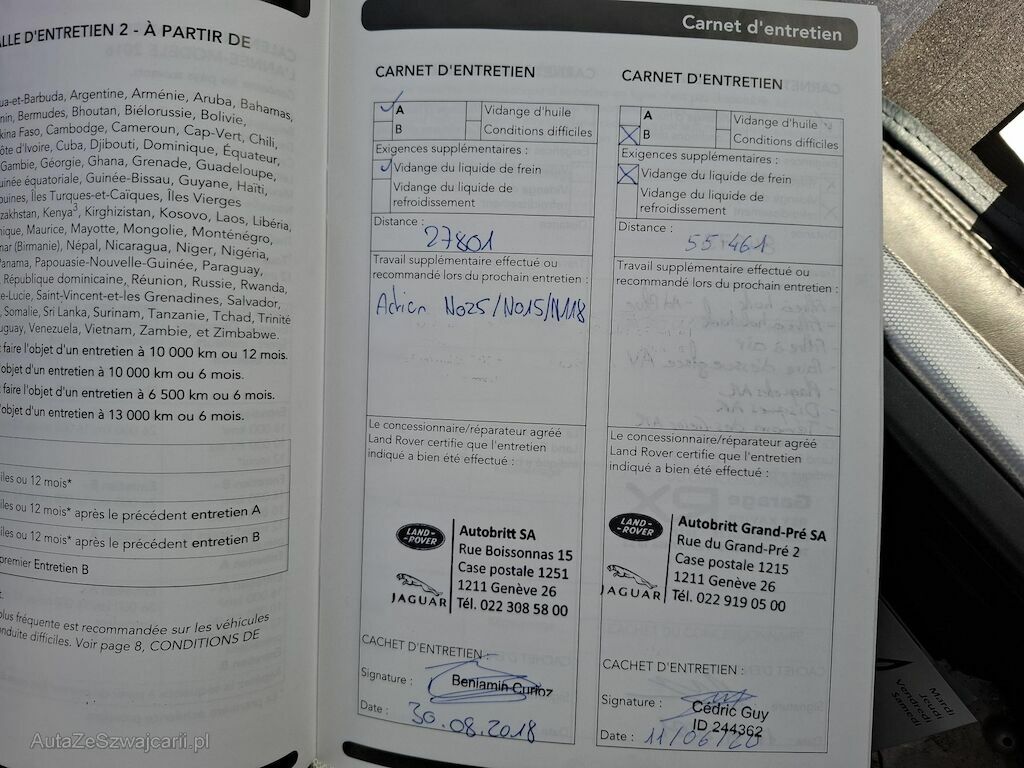 ALLE D'ENTRETIEN 2 - À PARTIR DE
ua-et-Barbuda, Argentine, Arménie, Aruba, Bahamas,
nin, Bermudes, Bhoutan, Biélorussie, Bolivie,
kina Faso, Cambodge, Cameroun, Cap-Vert, Chili,
ôte d'Ivoire, Cuba, Djibouti, Dominique, Équateur,
Gambie, Géorgie, Ghana, Grenade, Guadeloupe,
uinée équatoriale, Guinée-Bissau, Guyane, Haïti,
ouines, Îles Turques-et-Caïques, Îles Vierges
zakhstan, Kenya³, Kirghizistan, Kosovo, Laos, Libéria,
nique, Maurice, Mayotte, Mongolie, Monténégro,
mar (Birmanie), Népal, Nicaragua, Niger, Nigéria,
anama, Papouasie-Nouvelle-Guinée, Paraguay,
République dominicaine, Réunion, Russie, Rwanda,
e-Lucie, Saint-Vincent-et-les Grenadines, Salvador,
Somalie, Sri Lanka, Surinam, Tanzanie, Tchad, Trinité
uguay, Venezuela, Vietnam, Zambie, et Zimbabwe.
faire l'objet d'un entretien à 10 000 km ou 12 mois.
objet d'un entretien à 10 000 km ou 6 mois.
faire l'objet d'un entretien à 6 500 km ou 6 mois.
objet d'un entretien à 13 000 km ou 6 mois.
iles ou 12 mois*
iles ou 12 mois* après le précédent entretien A
iles ou 12 mois* après le précédent entretien B
premier Entretien B
plus fréquente est recommandée sur les véhicules
onduite difficiles. Voir page 8, CONDITIONS DE
Carnet d'entretien
CARNET D'ENTRETIEN
A
Vidange d'huile
B
Conditions difficiles
Exigences supplémentaires :
Vidange du liquide de frein
Vidange du liquide de
refroidissement
Distance :
27801
Travail supplémentaire effectué ou
recommandé lors du prochain entretien :
Action N025/N015/N118
Le concessionnaire/réparateur agréé
Land Rover certifie que l'entretien
indiqué a bien été effectué :
LAND-
-ROVER
JAGUAR
Autobritt SA
Rue Boissonnas 15
Case postale 1251
1211 Genève 26
Tél. 022 308 58 00
CACHET D'ENTRETIEN :
Signature :
Benjamin Curioz
Date :
30.08.2018
CARNET D'ENTRETIEN
A
Vidange d'huile
B
Conditions difficiles
Exigences supplémentaires :
Vidange du liquide de frein
Vidange du liquide de
refroidissement
Distance :
55 461
Travail supplémentaire effectué ou
recommandé lors du prochain entretien :
Le concessionnaire/réparateur agréé
Land Rover certifie que l'entretien
indiqué a bien été effectué :
LAND-
-ROVER
JAGUAR
Autobritt Grand-Pré SA
Rue du Grand-Pré 2
Case postale 1215
1211 Genève 26
Tél. 022 919 05 00
CACHET D'ENTRETIEN :
Signature :
Cédric Guy
ID 244362
Date :
11/06/20
Mardi
Jeudi
Vendredi
Samedi
AutaZeSzwajcarii.pl